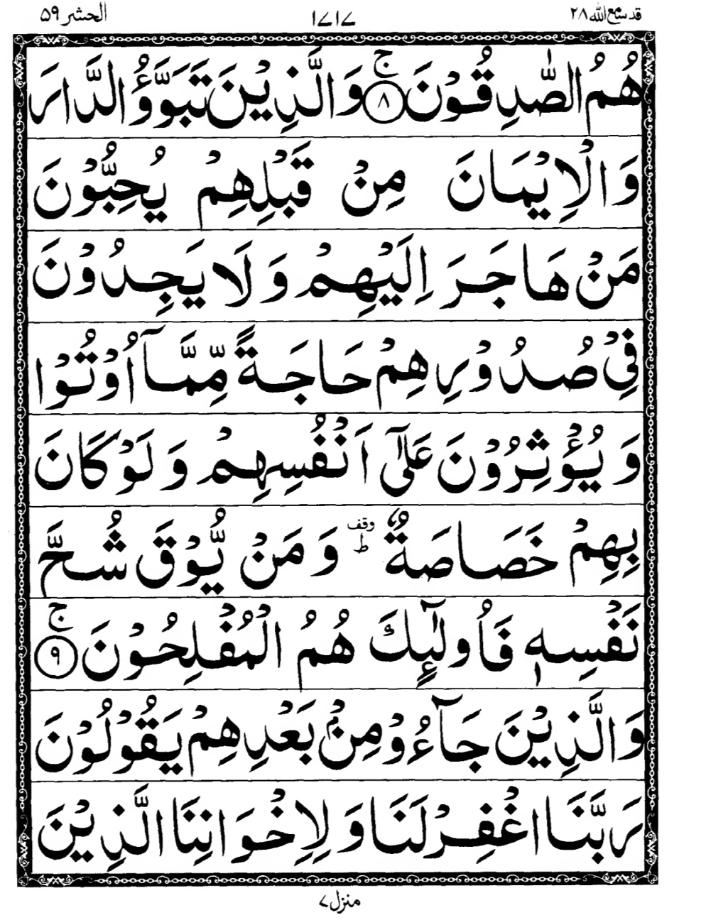 قد سمع الله ٢٨ ١٤١٤ الحشر ٥٩
هُمُ الصّٰدِقُوْنَ ۚ﴿۸﴾ وَالَّذِيْنَ تَبَوَّؤُ الدَّارَ
وَالْاِيْمَانَ مِنْ قَبْلِهِمْ يُحِبُّوْنَ
مَنْ هَاجَرَ اِلَيْهِمْ وَلَا يَجِدُوْنَ
فِيْ صُدُوْرِهِمْ حَاجَةً مِّمَّاۤ اُوْتُوْا
وَيُؤْثِرُوْنَ عَلٰۤى اَنْفُسِهِمْ وَلَوْ كَانَ
بِهِمْ خَصَاصَةٌ وقف ؕ وَمَنْ يُّوْقَ شُحَّ
نَفْسِهٖ فَاُولٰٓئِكَ هُمُ الْمُفْلِحُوْنَ ۚ﴿۹﴾
وَالَّذِيْنَ جَآءُوْ مِنْۢ بَعْدِهِمْ يَقُوْلُوْنَ
رَبَّنَا اغْفِرْ لَنَا وَلِاِخْوَانِنَا الَّذِيْنَ
منزل ۷